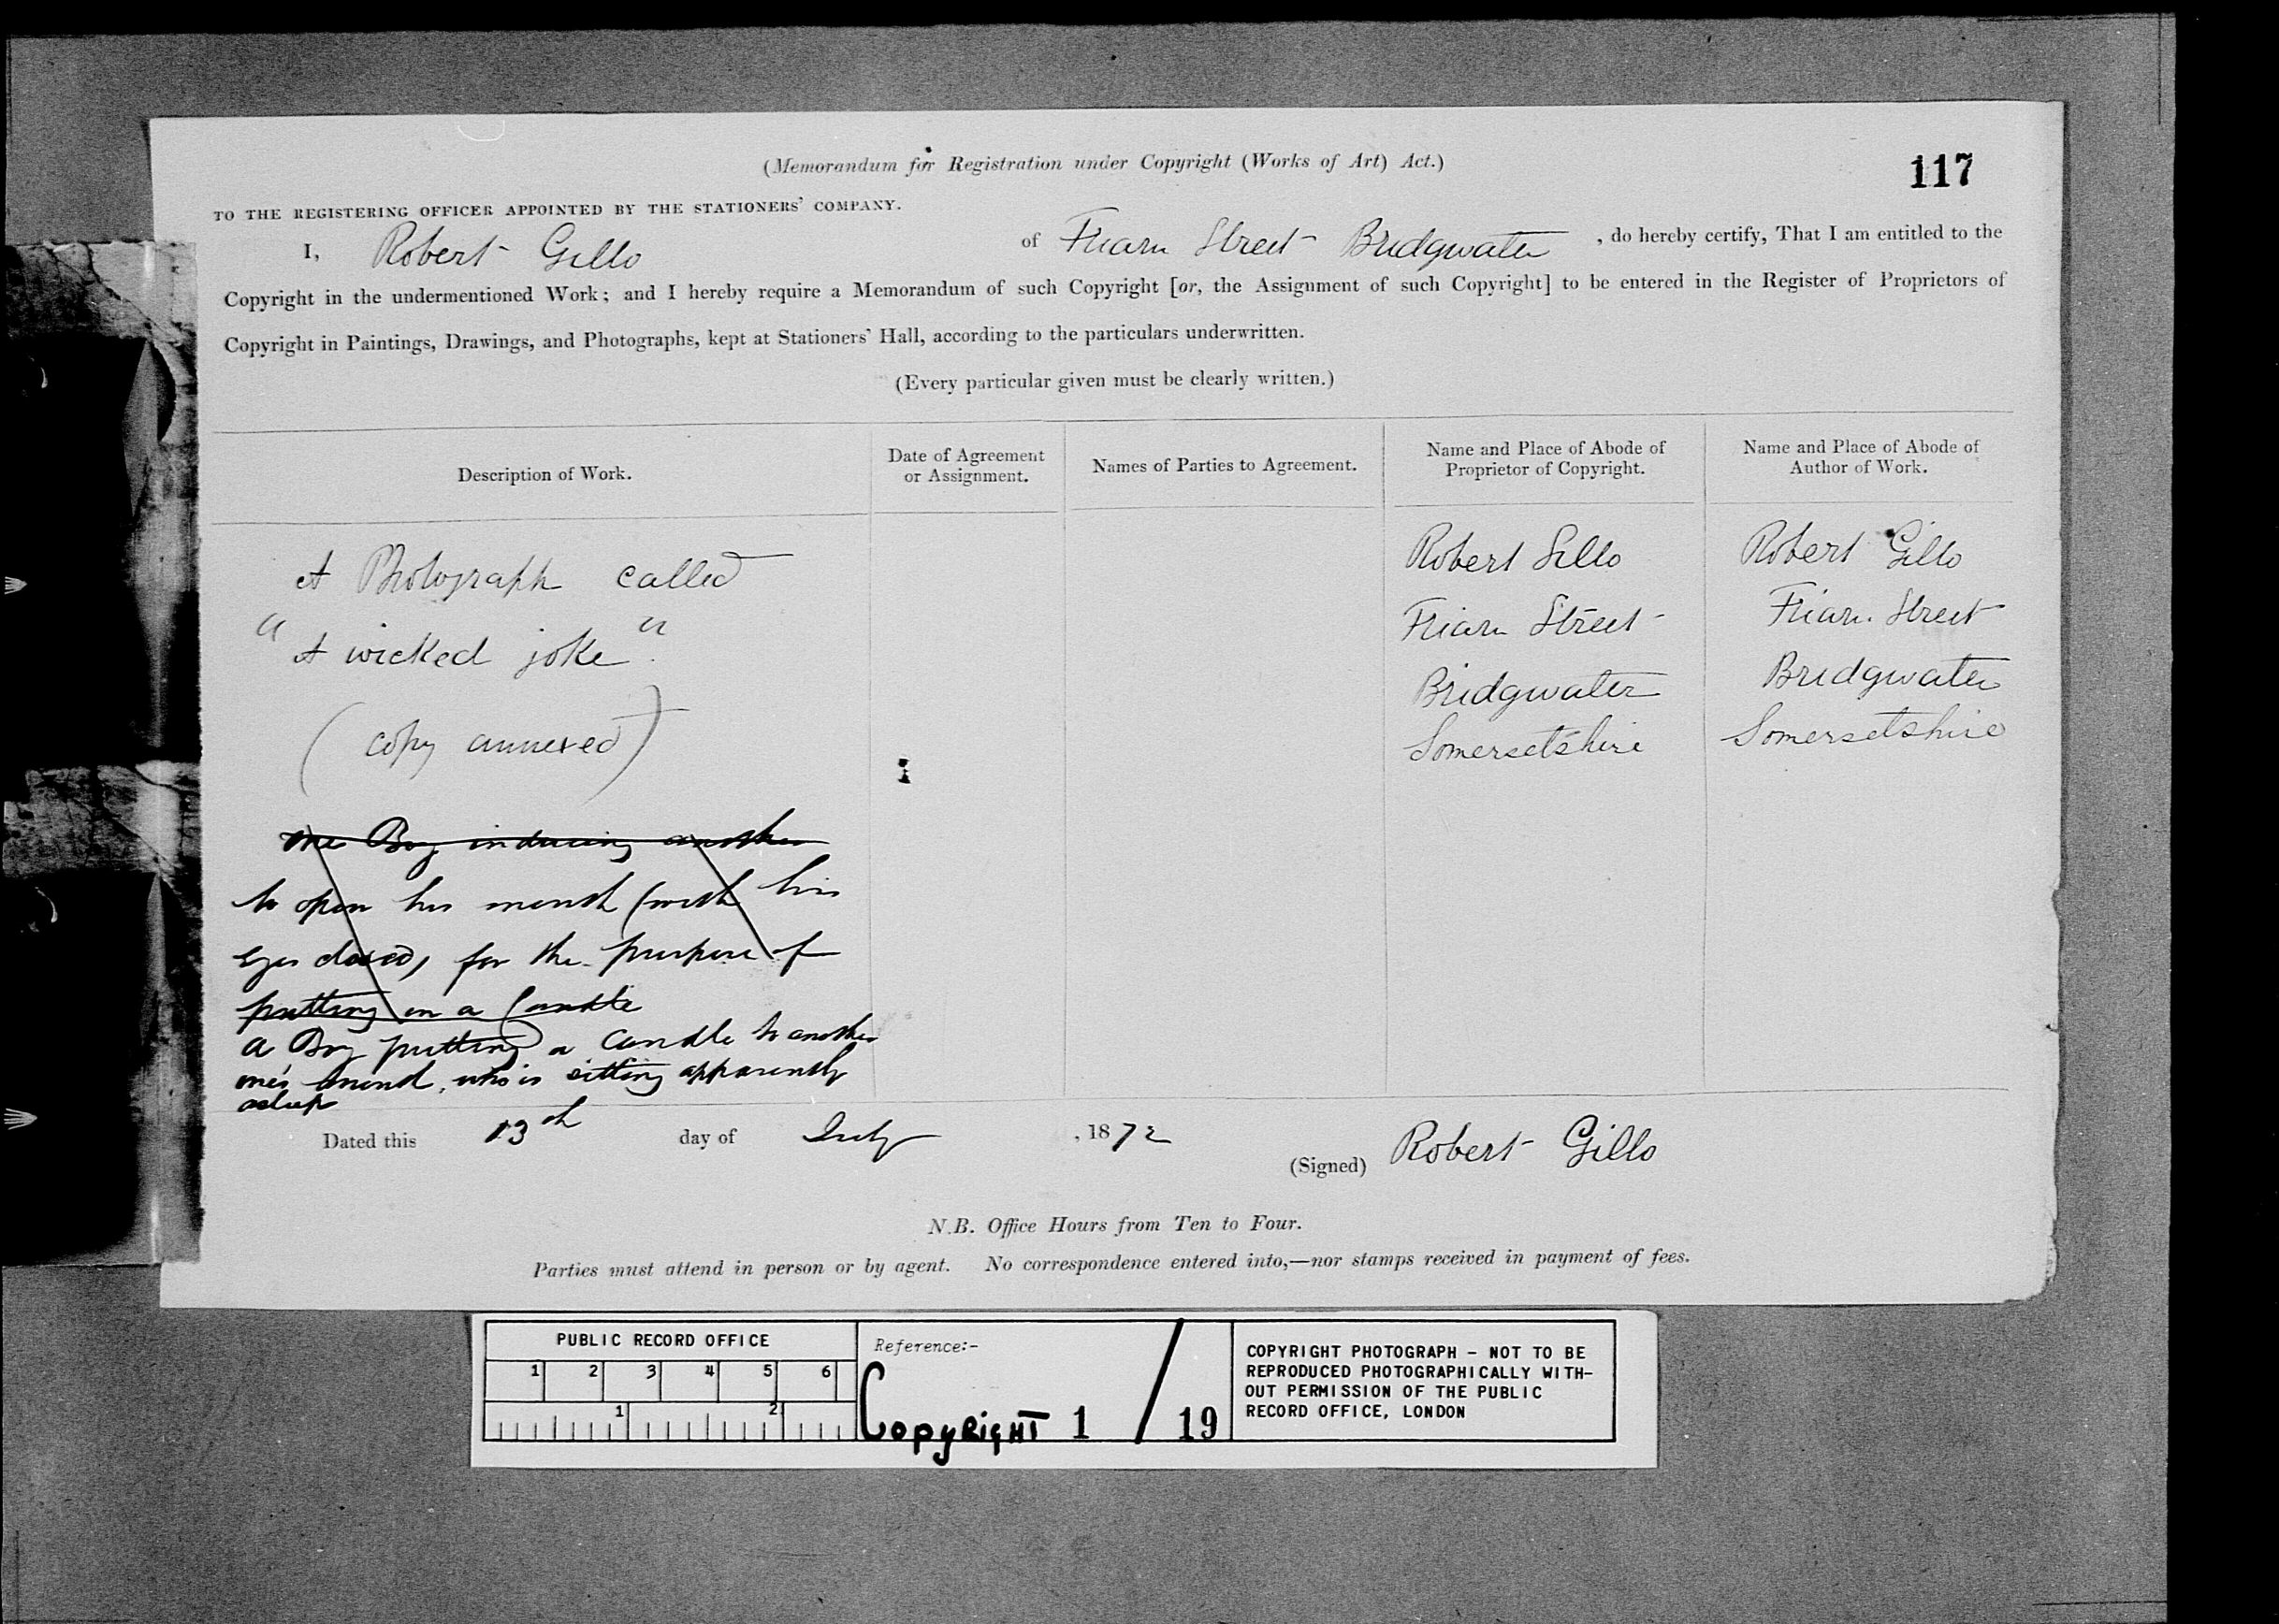 (Memorandum for Registration under Copyright (Works of Art) Act.)
117
TO THE REGISTERING OFFICER APPOINTED BY THE STATIONERS' COMPANY.
I, Robert Gillo of Friarn Street Bridgwater, do hereby certify, That I am entitled to the
Copyright in the undermentioned Work; and I hereby require a Memorandum of such Copyright [or, the Assignment of such Copyright] to be entered in the Register of Proprietors of
Copyright in Paintings, Drawings, and Photographs, kept at Stationers' Hall, according to the particulars underwritten.
(Every particular given must be clearly written.)
Description of Work.
Date of Agreement
or Assignment.
Names of Parties to Agreement.
Name and Place of Abode of
Proprietor of Copyright.
Name and Place of Abode of
Author of Work.
A Photograph called
"A wicked joke".
(copy annexed)
One Boy inducing another
to open his mouth (with his
eyes closed) for the purpose of
putting in a Candle
a Boy putting a Candle to another
one's mouth, who is sitting apparently
asleep
Robert Gillo
Friarn Street
Bridgwater
Somersetshire
Robert Gillo
Friarn Street
Bridgwater
Somersetshire
Dated this 13th day of July, 1872
(Signed) Robert Gillo
N.B. Office Hours from Ten to Four.
Parties must attend in person or by agent. No correspondence entered into,—nor stamps received in payment of fees.
PUBLIC RECORD OFFICE
1 2 3 4 5 6
1 2
Reference:-
Copyright 1 / 19
COPYRIGHT PHOTOGRAPH - NOT TO BE
REPRODUCED PHOTOGRAPHICALLY WITH-
OUT PERMISSION OF THE PUBLIC
RECORD OFFICE, LONDON